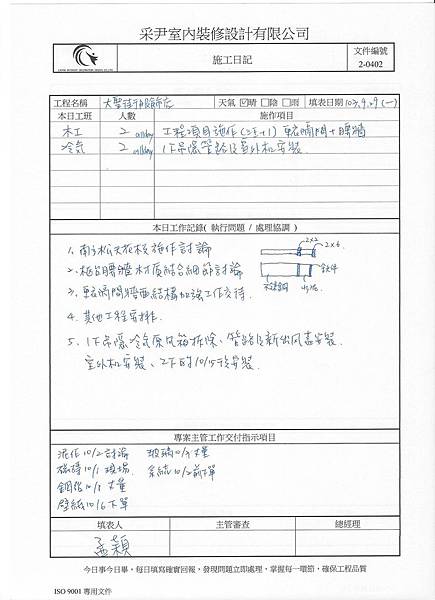 采尹室內裝修設計有限公司
施工日記
文件編號
2-0402
工程名稱 天氣 ☑晴 □陰 □雨 填表日期 103.9.29 (一)
本日工班 人數 施作項目
木工 2 allday 工程項目施作 輕隔間+腰牆
冷氣 2 allday 1F吊隱管路及室外機安裝
本日工作記錄( 執行問題 / 處理協調 )
1. 南方松天花板施作討論
2. 腰牆材質結合細節討論
3. 輕隔間牆面結構加強工作交待.
4. 其他工程安排.
5. 1F吊隱冷氣原風箱拆除、管路及新出風盒安裝.
室外機安裝、2F的10/5後安裝.
2×2 2×6
不銹鋼
專案主管工作交付指示項目
泥作10/2討論 玻璃10/9丈量
磁磚10/1現場. 系統10/2前下單
鋁 10/8丈量
壁紙10/6下單
填表人 主管審查 總經理
孟穎
今日事今日畢，每日填寫確實回報，發現問題立即處理，掌握每一環節，確保工程品質
ISO 9001 專用文件